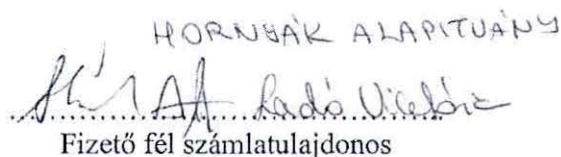 HORNYÁK ALAPITVÁNY
Radó Viktória
Fizető fél számlatulajdonos